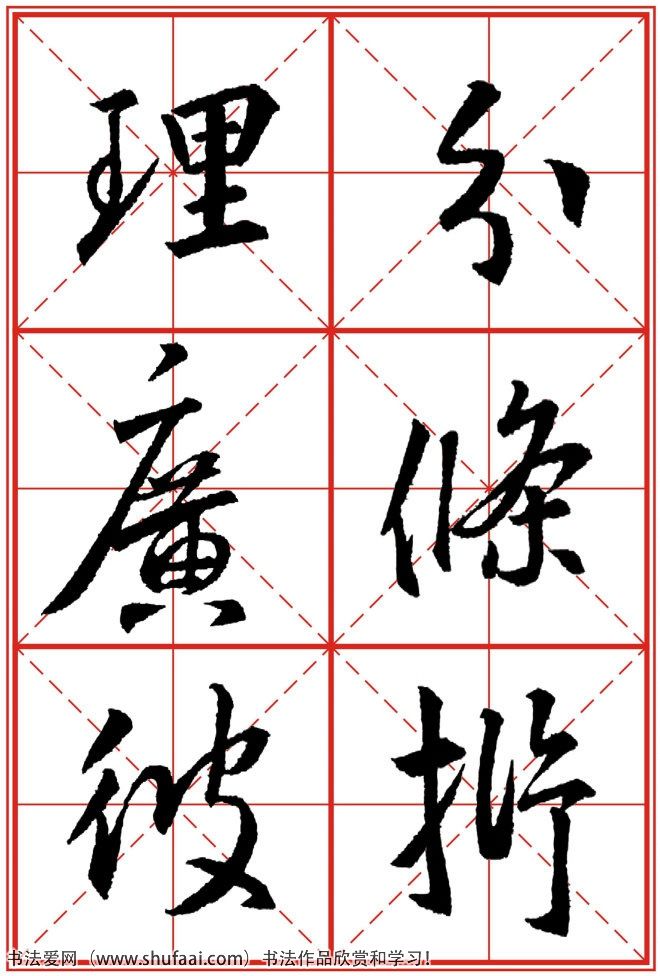 分條析
理廣彼
书法爱网（www.shufaai.com）书法作品欣赏和学习！